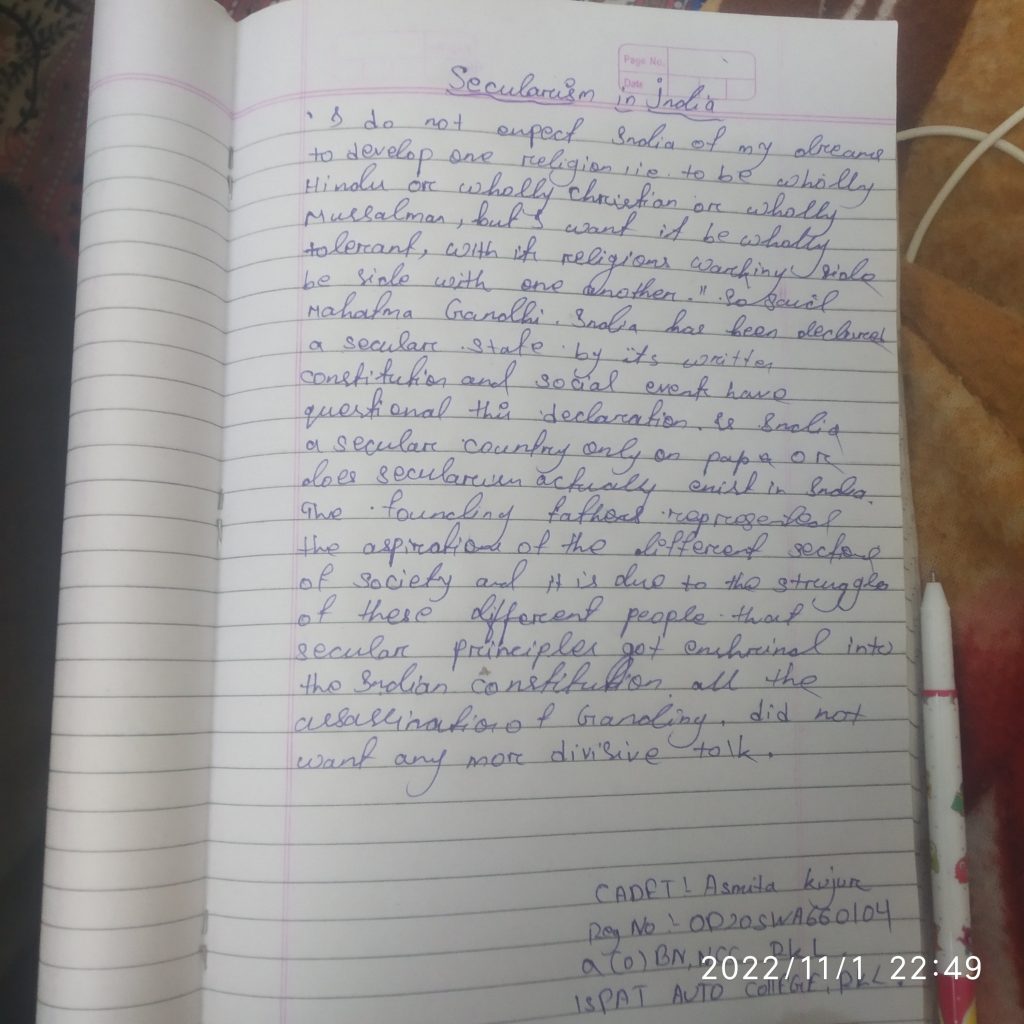 Page No.
Date
Secularism in India
"I do not expect India of my dreams
to develop one religion, i.e. to be wholly
Hindu or wholly Christian or wholly
Mussalman, but I want it be wholly
tolerant, with its religions working side
be side with one another." So said
Mahatma Gandhi. India has been declared
a secular state by its written
constitution and social event have
questional this declaration. Is India
a secular country only on pape or
does secularism actualy exist in India.
The founding fathers represented
the aspirations of the different sections
of society and it is due to the struggles
of these different people that
secular principles got enshrined into
the Indian constitution. all the
assassination of did not
want any more divisive talk.
CADET: Asmita Kujur
Reg No: OD20SWA660104
BN, NCC,
ISPAT AUTO COllEGE, RKL.
2022/11/1 22:49